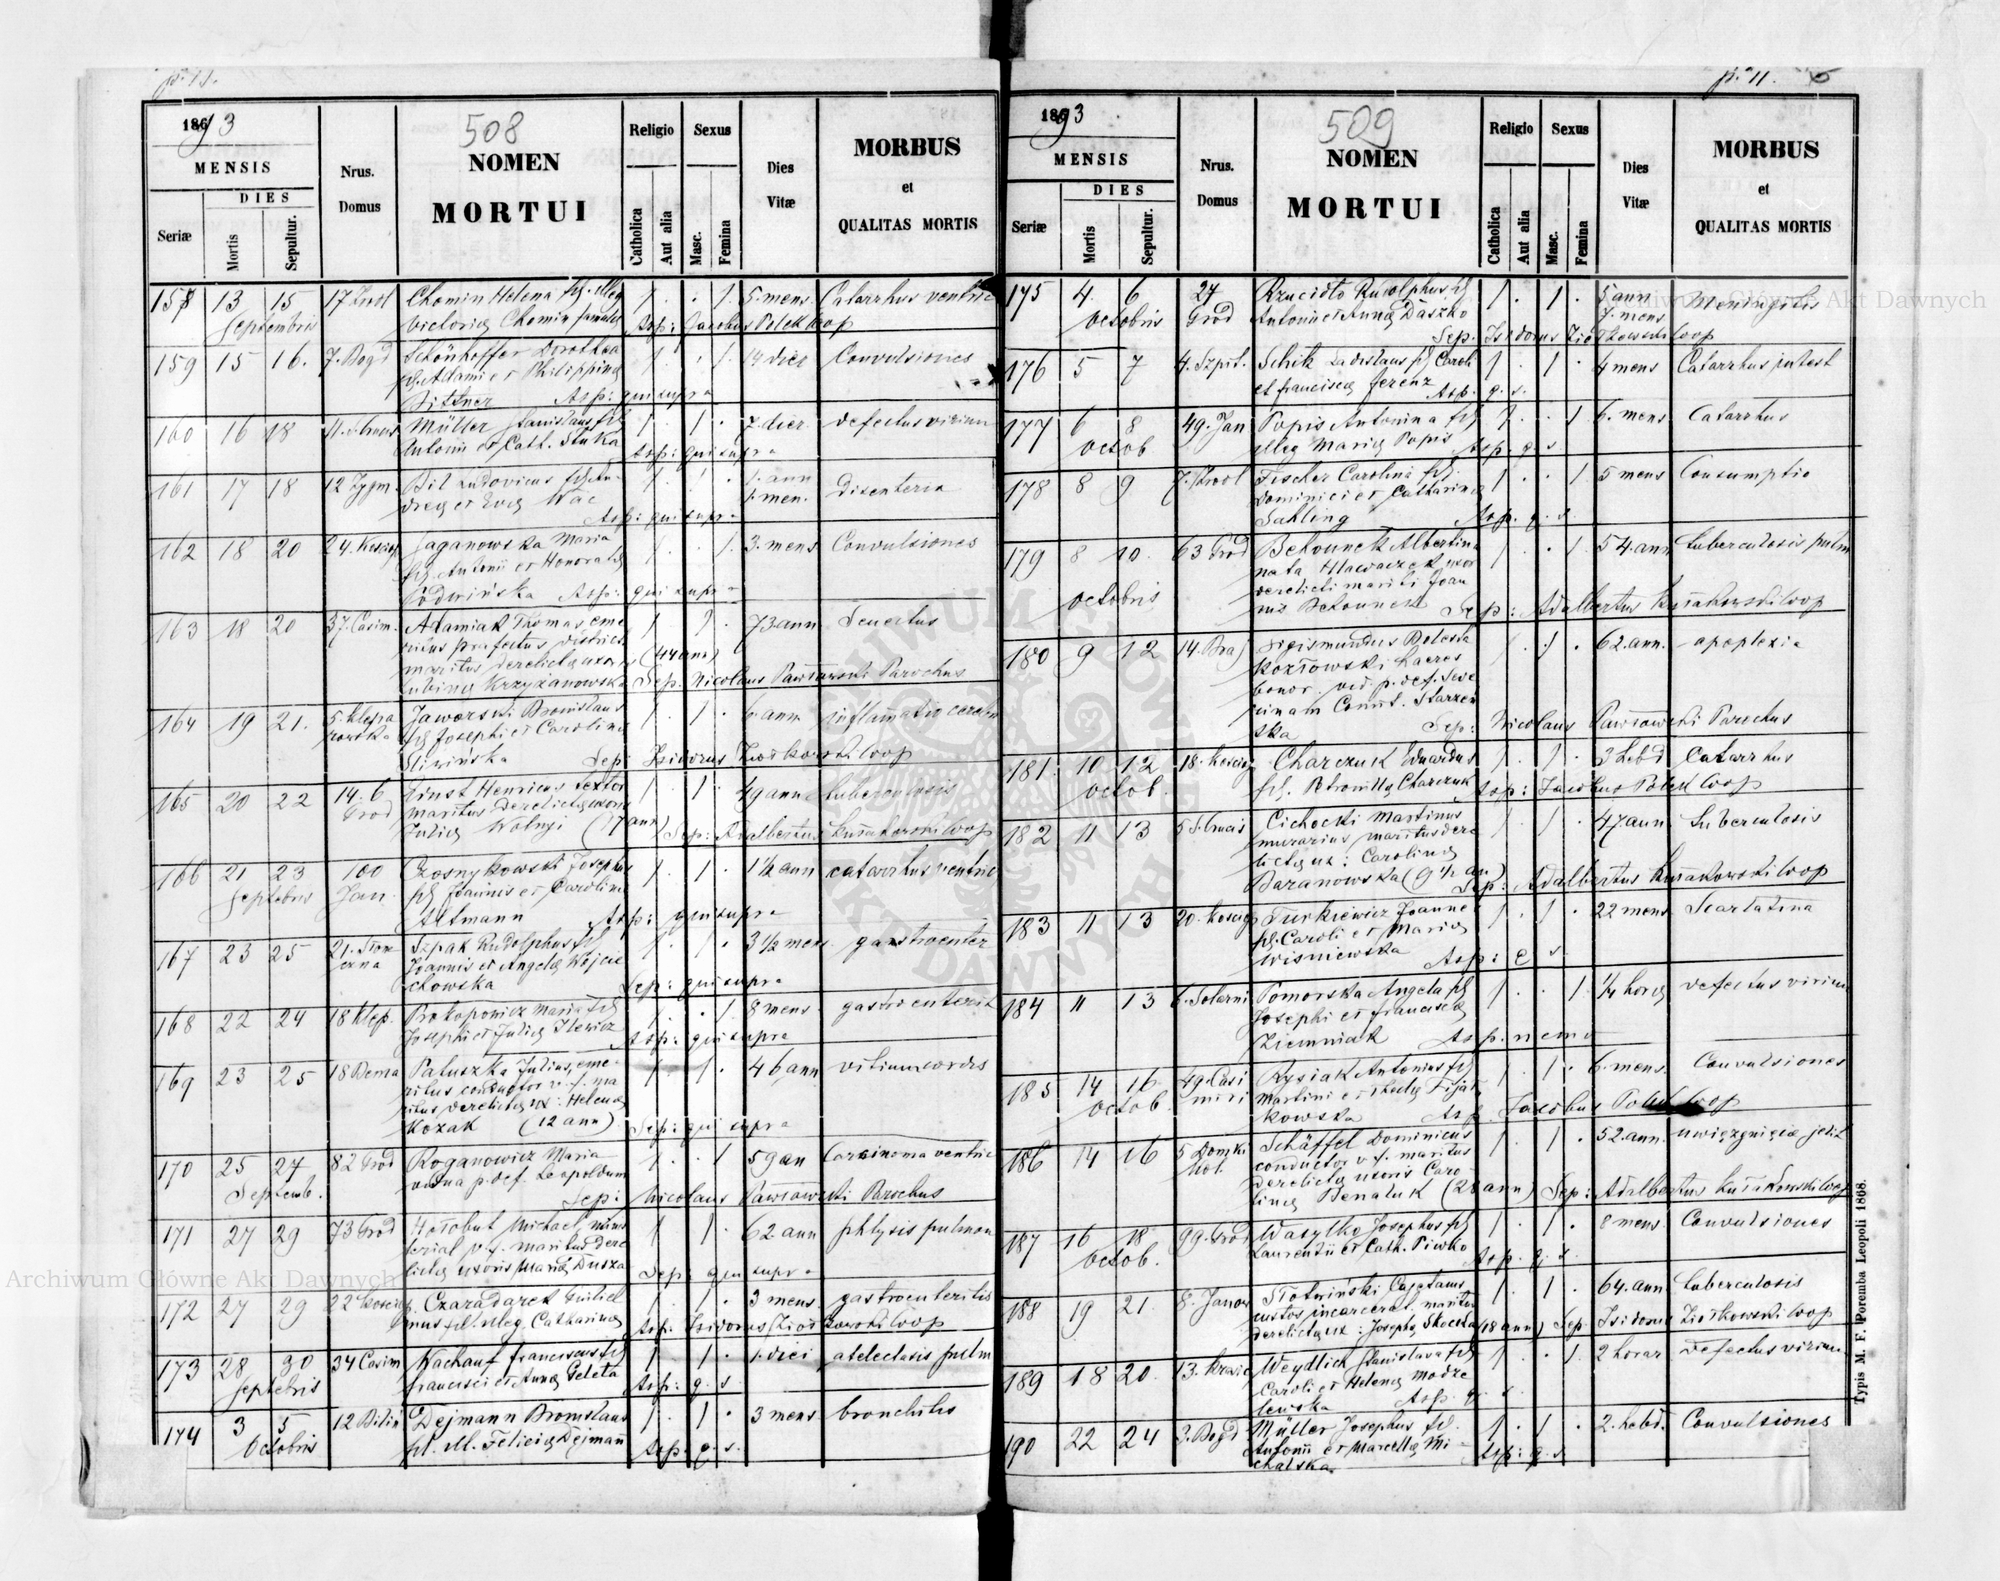 p. 11.
1893
508
Religio Sexus
MENSIS
Nrus. Domus
NOMEN MORTUI
Dies Vitæ
MORBUS et QUALITAS MORTIS
DIES
Seriæ Mortis Sepultur.
Catholica Aut alia Masc. Femina
13 15 Septembris 5. mens. Catarrhus ventric
Chomin Helena fil. illeg
Victoriæ Chomin famulæ
Asp: Jacobus Polek Coop
159 15 16. 7. Bogd Schönhoffer Dorothea 1. . 1. 14 dier Convulsiones
fil. Adami et Philippinæ
Bittner Asp: qui supra
160 16 18 11. S. Crucis Müller Stanislaus fil 1. 1. 7. dier. defectus virium
Antonii et Cath. Stuka Asp: qui supra
161 17 18 12 Zygm. Bil Ludovicus fil An- 1. 1. 1. ann 1. men. disenteria
dreæ et Evæ Wac
Asp: qui supra
162 18 20 24. Kosciog Jaganowska Maria 1. . 1. 3. mens Convulsiones
fil. Antonii et Honoratæ
Asp: qui supra
163 18 20 37. Casim. Adamiak Thomas eme 1 1. 73 ann Senectus
ritus præfectus district
maritus derelictæ uxoris (44 ann)
Lubinæ Krzyżanowska Sep. Nicolaus Pawłowski Parochus
164 19 21. 5. Klepa rowska Jaworski Bronislaus 1. 1. 6. ann inflamatio cerebri
fil. Josephi et Carolinæ
Śliwińska Sep. Isidorus Ziołkowski Coop
165 20 22 14. 6 Grod Ernst Henricus textor 1. 1. 49 ann tuberculosis
maritus derelictæ uxoris
Juliæ Wolnyi (17 ann) Sep: Adalbertus Kułakowski Coop
166 21 23 Septebris 100 Jan. Czosnykowski Josephus 1. 1. 1½ ann catarrhus ventric
fil Joannis et Carolinæ
Altmann Asp: qui supra
167 23 25 Szpak Rudolphus fil 1. 1. 3½ men gastroenter
Joannis et Angelæ Wojcie
chowska Sep: qui supra
168 22 24 18 Klep. Prokopowicz Maria fil 1. . 1. 8 mens gastroenterit
Josephi et Juliæ Ilewicz Asp: qui supra
169 23 25 18 Bema Paluszka Julius, eme- 1. 1. 46 ann vitium cordis
ritus conductor v. f. ma
ritus derelictæ ux: Helenæ
Kozak (12 ann) Sep: qui supra
170 25 27 Septemb. 82 Grod Roganowicz Maria 1. . 1 59 an Carcinoma ventric
vidua p. def. Leopoldum
Sep: Nicolaus Pawłowski Parochus
171 27 29 73 Grod Hołobut Michael, minis 1 1. 62 ann phtysis pulmon
terial v. f. maritus dere
lictæ uxoris Mariæ Dusza Sep: qui supra
172 27 29 22 Kosciog. Czaradarek Guiliel 1. . 3 mens. gastroenteritis
mus fil. illeg. Catharinæ Asp: Isidorus Ziołkowski Coop
173 28 30 Septebris 34 Casim Nachauf Franciscus fil 1 1. 1. diei atelectasis pulm
Francisci et Annæ Geleta Asp: q. s.
174 3 5 Octobris 12 Bilin Dejmann Bronislaus 1. 1. 3 mens bronchitis
fil. ill. Feliciæ Dejmann Asp. q. s.
p. 11. 6
1893
509
Religio Sexus
MENSIS
Nrus. Domus
NOMEN MORTUI
Dies Vitæ
MORBUS et QUALITAS MORTIS
DIES
Seriæ Mortis Sepultur.
Catholica Aut alia Masc. Femina
175 4. 6 Octobris 27 Grod Rzucidło Rudolphus fil 1. 1. 5 ann 7. mens Meningitis
Antonii et Annæ Daszko
Sep. Isidorus Ziołkowski Coop
176 5 7 4. Szpit. Schik Ladislaus fil Caroli 1. 1. 4 mens Catarrhus intest
et Franciscæ Ferenz Asp. q. s.
177 6 8 Octob 49. Jan Popis Antonina fil 1. . 1 6. mens Catarrhus
illeg Mariæ Popis Asp. q. s
178 8 9 7. Krol Fischer Carolina fil. 1. . 1 5 mens Consumptio
Dominici et Catharinæ
Sahling Asp. q. s.
179 8 10. Octobris 63 Grod Bekounek Albertina 1. . 1 54. ann tuberculosis pulm
nata Hlawaczek uxor
derelicti mariti Joan
nis Bekounek Sep: Adalbertus Kułakowski Coop
180 9 12 14. Braj Sigismundus Bolesta 1. 1. 62. ann. apoplexia
Kozłowski hæres
bonor. vid. p. def. Seve
rinam Comit. Starzeń
ska Sep: Nicolaus Pawłowski Parochus
181. 10 12 Octob. 18. Kosciog Charczuk Eduardus 1. 1. 3 hebd Catarrhus
fil. Petronillæ Charczuk Asp: Jacobus Polek Coop
182 11 13 5 S. Crucis Cichocki Martinus 1. 1. 47. ann tuberculosis
murarius, maritus dere
lictæ ux: Carolinæ
Baranowska (9½ an) Sep: Adalbertus Kułakowski Coop
183 11 13 20. Kosciog Turkiewicz Joanne 1. 1. 22 mens Scarlatina
fil. Caroli et Mariæ
Wiśniewska Asp: q s
184 11 13 6. Solarni Pomorska Angela fil 1. . 1. ¼ horæ defectus virium
Josephi et Franciscæ
Ziemniak Asp. nemo
185 14 16 Octob. 49. Casi miri Rysiak Antonius fil 1. 1. 6. mens. Convulsiones
kowska Asp. Jacobus Polek Coop
186 14 16 Schäffel Dominicus 1. 1. 52. ann. uwięzgnięcie jelit
conductor v. f. maritus
derelictæ uxoris Caro-
linæ Benaluk (28 ann) Sep: Adalbertus Kułakowski Coop
187 16 18 Octob. 99. Grod Wasylko Josephus fil 1. 1. 8 mens. Convulsiones
Laurentii et Cath. Piwko Asp. q. s.
188 19 21 8. Janow Słotwiński Cajetanus 1. 1. 64. ann tuberculosis
custos incarcerat. maritus
derelictæ ux: Josephæ (18 ann) Sep. Isidorus Ziołkowski Coop
189 18 20. 13. Weydlich Stanislava fil 1. . 1. 2 horar defectus virium
Caroli et Helenæ Modze
lewska Asp. q. s.
190 22 24 3. Bogd Müller Josephus fil. 1. 1. 2. hebd. Convulsiones
Antonii et Marcellæ Mi-
chalska Asp: q s
Typis M. F. Poremba Leopoli 1868.
Archiwum Główne Akt Dawnych
Archiwum Główne Akt Dawnych
ARCHIWUM GŁÓWNE AKT DAWNYCH